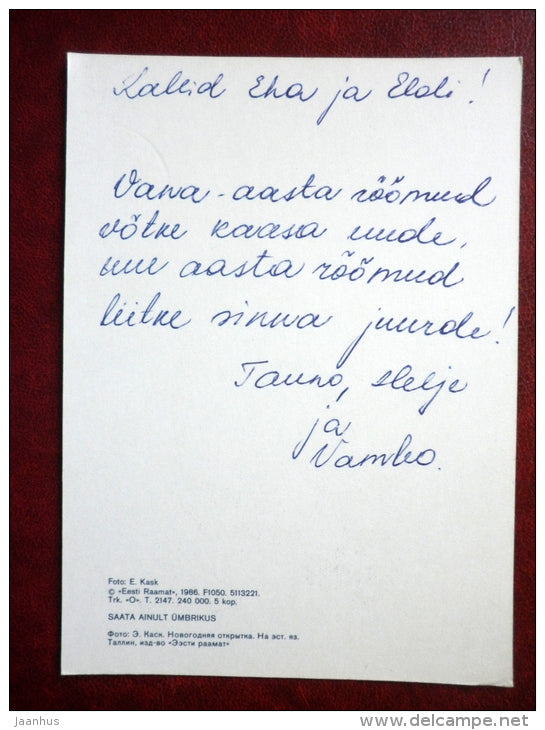 Kallid Eha ja Eldi!
Vana-aasta rõõmud
võtke kaasa uude,
uue aasta rõõmud
liitke sinna juurde!
Tauno, Helje
ja
Vambo.
Foto: E. Kask
© «Eesti Raamat», 1986. F1050. 5113221.
Trk. «O». T. 2147. 240 000. 5 kop.
SAATA AINULT ÜMBRIKUS
Фото: Э. Каск. Новогодняя открытка. На эст. яз.
Таллин, изд-во «Ээсти раамат»
jaanhus
www.delcampe.net